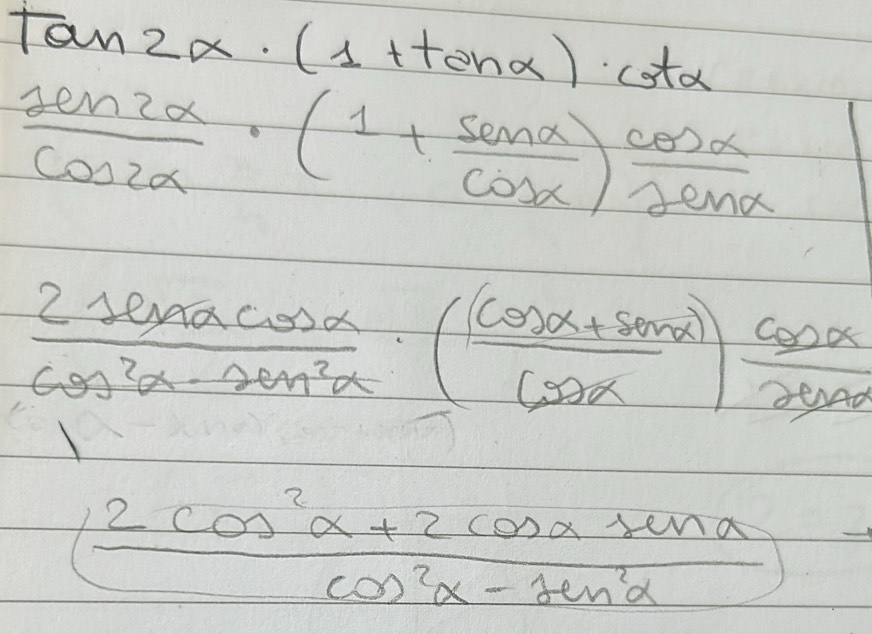 Tan2α · (1 + tanα) · cotα
sen2α/cos2α · (1 + senα/cosα) cosα/senα
2 senα cosα/cos²α - sen²α · ((cosα + senα)/cosα) cosα/senα
2 cos²α + 2 cosα senα/cos²α - sen²α